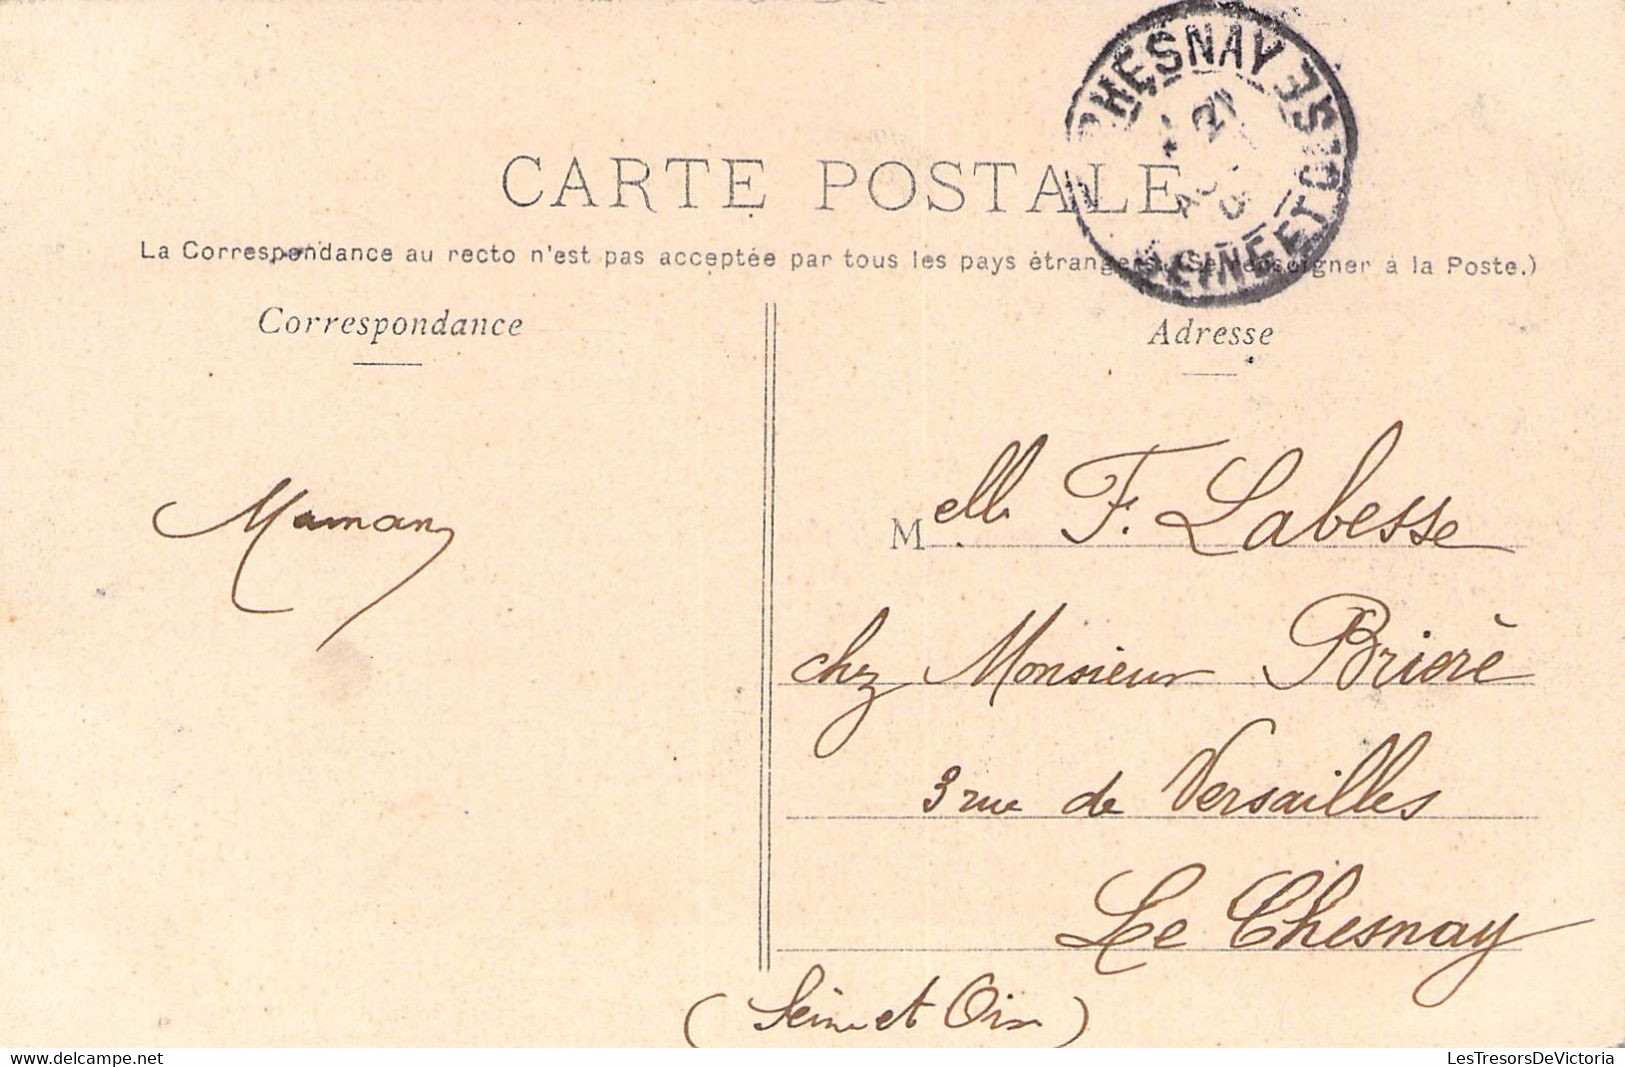 CHESNAY
SEINE ET OISE
21
CARTE POSTALE
La Correspondance au recto n'est pas acceptée par tous les pays étrangers. (Se renseigner à la Poste.)
Correspondance
Adresse
Maman
Melle F. Labesse
chez Monsieur Brierè
3 rue de Versailles
Le Chesnay
(Seine et Oise)
www.delcampe.net
LesTresorsDeVictoria